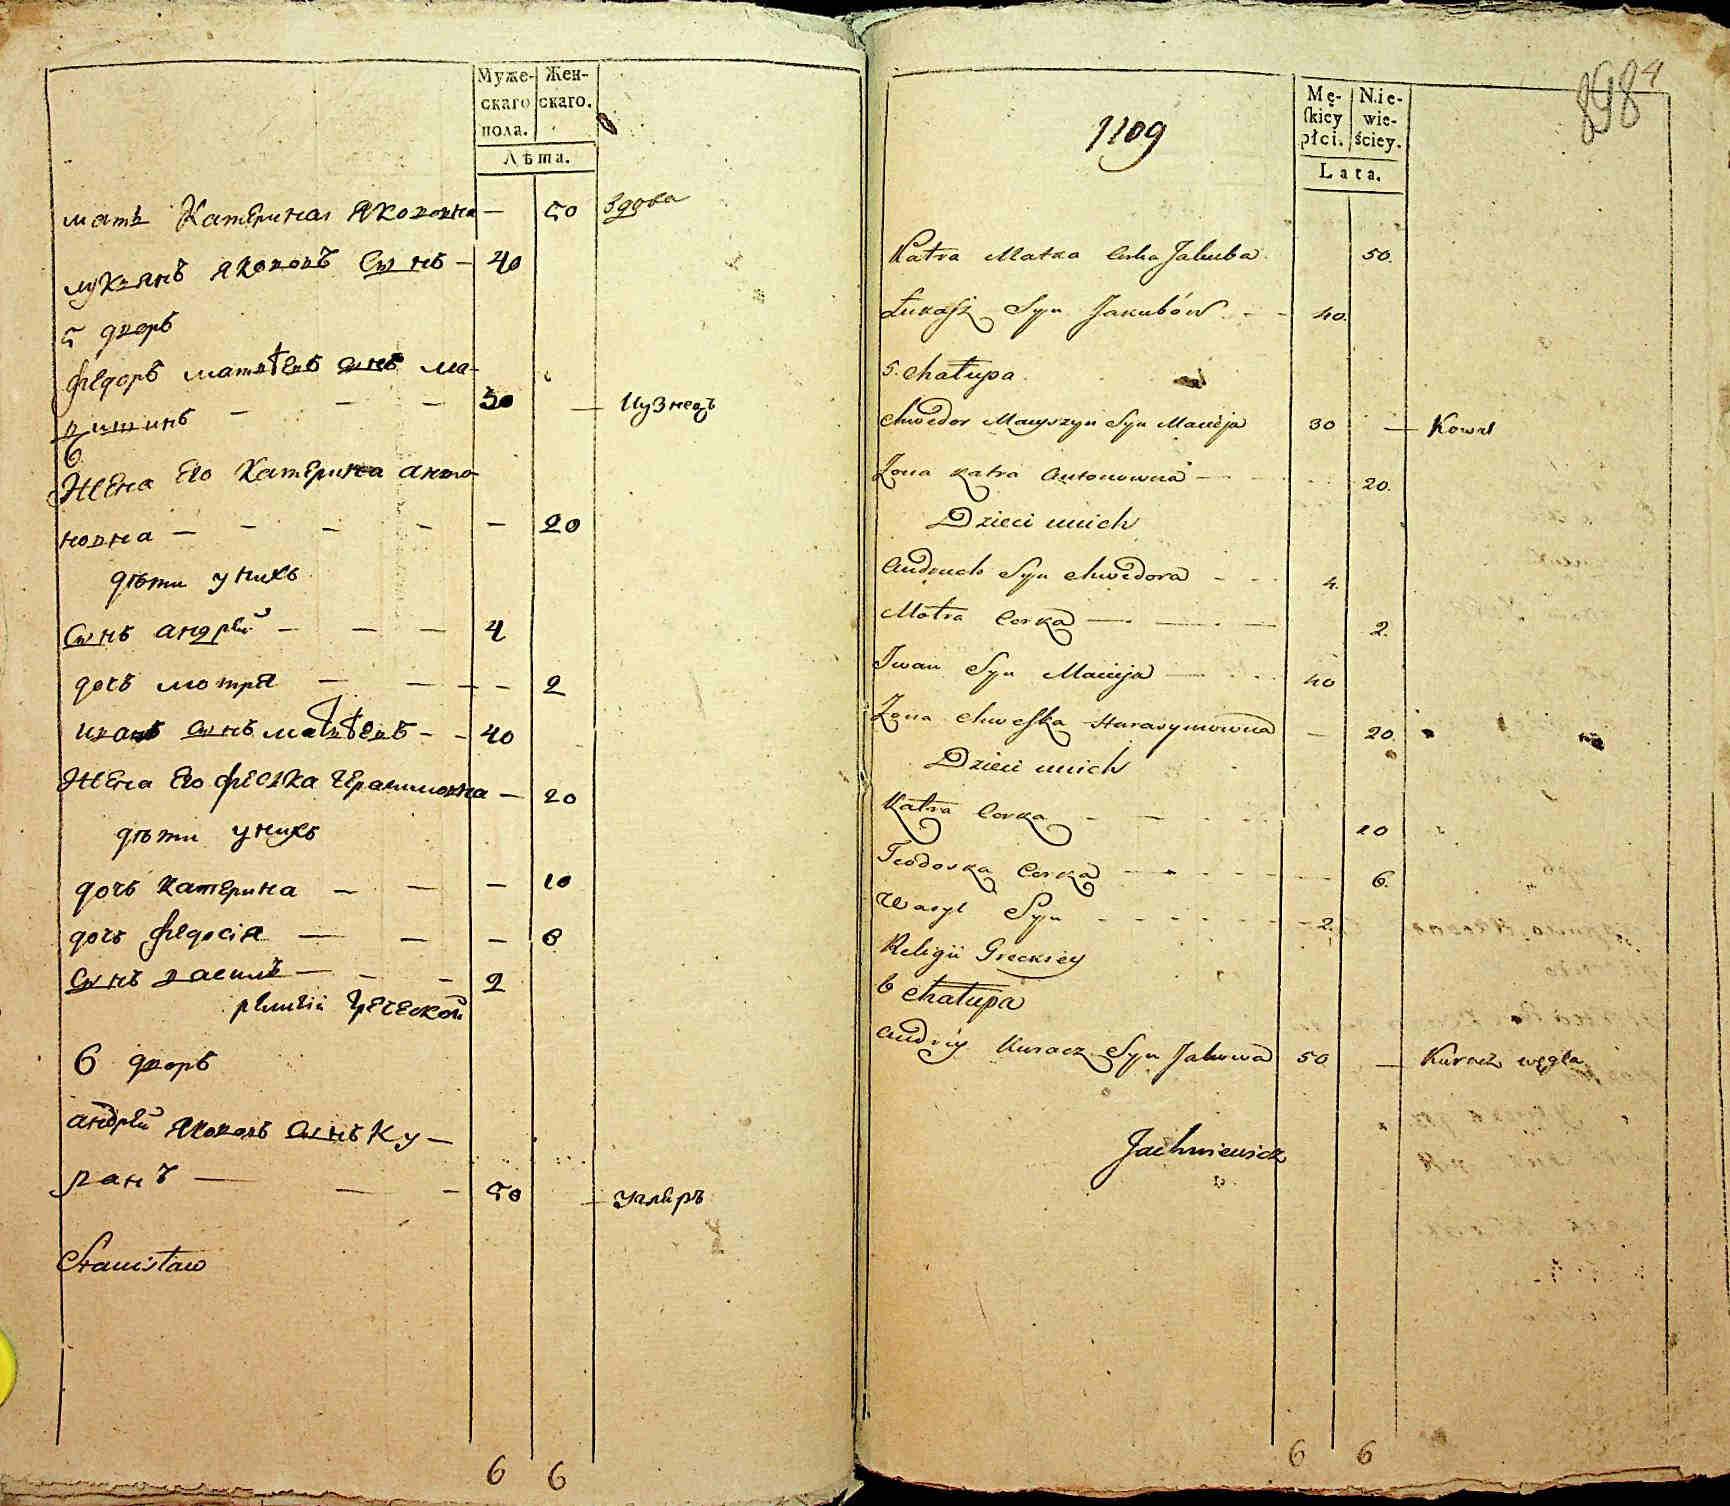 Муже- Жен-
скаго скаго.
пола.
Лѣта.
мать Катерина Якововна — 50 вдова
лукянъ якововъ сынъ — 40
5 дворъ
федоръ матвѣевъ сынъ ма-
ришинъ — — — 30 — кузнецъ
Жена его Катерина анто-
новна — — — — — 20
дѣти у нихъ
Сынъ андрѣй — — — 4
дочь мотря — — — — 2
иванъ сынъ матвѣевъ — — 40
Жена его феска Герасимовна — 20
дѣти у нихъ
дочь катерина — — — 10
дочь федосія — — — 6
Сынъ василь — — — 2
религіи Греческой
6 дворъ
андрѣй Якововъ сынъ Ку—
рачъ — — — 50 — углѣръ
Stanisław
6 6
1109
898
4
Mę- Nie-
skiey wie-
płci. ściey.
Lata.
Katra Matka Corka Jakuba 50.
Łukasz Syn Jakubów — — 40.
5. chałupa
Chwedor Maryszyn Syn Macieja 30 — Kowal
Żona Katra Antonowna — 20.
Dzieci u nich
Andruch Syn Chwedora — 4.
Motra Corka — — — 2.
Iwan Syn Macieja — 40
Żona Chweska Harasymowna — 20
Dzieci u nich
Katra Corka — — — 10
Teodoska Corka — — — 6.
Wasyl Syn — — — 2.
Religii Greckiey
6 chałupa
Andriy Kuracz Syn Jakuwa 50 — Kurach węgla
Jachniewicz
6 6